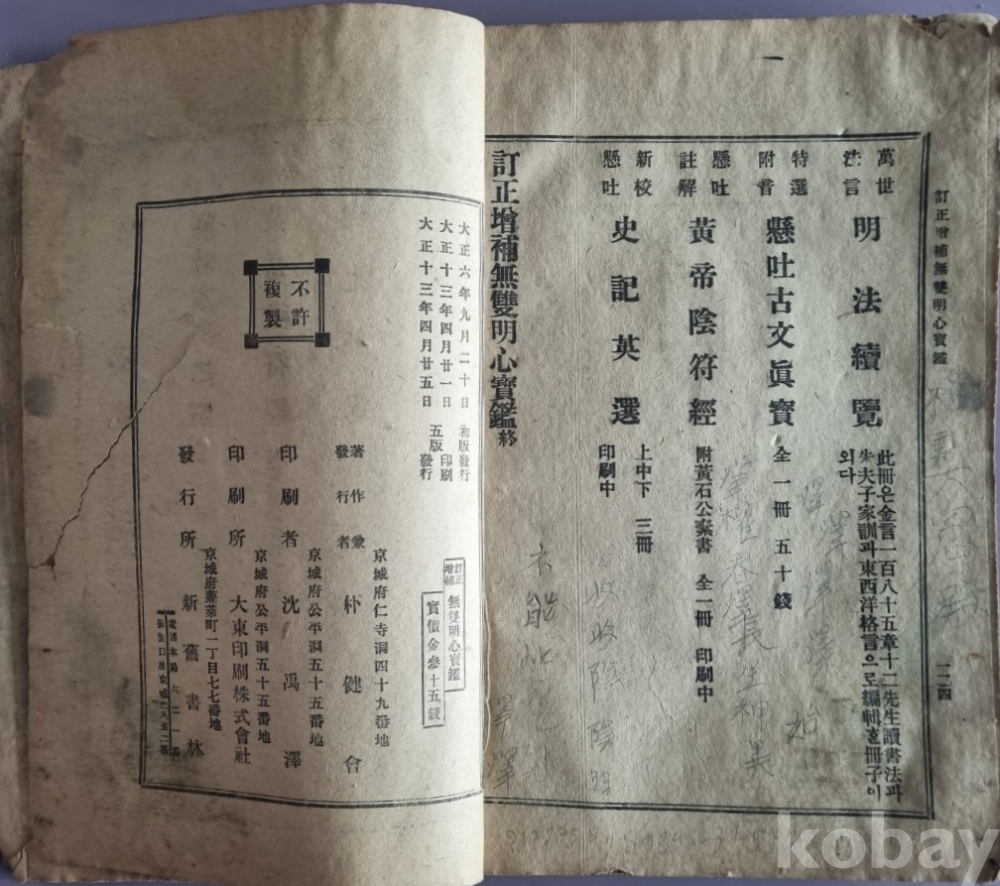 訂正增補無雙明心寶鑑
一一四
萬世法言
明法續覽
此冊은金言一百八十五章十二先生讀書法과
朱夫子家訓과東西洋格言으로編輯혼冊子이
외다
特選附音
懸吐古文眞寶
全一冊 五十錢
懸吐註解
黃帝陰符經
附黃石公素書 全一冊 印刷中
新校懸吐
史記英選
上中下 三冊
印刷中
訂正增補無雙明心寶鑑終
大正六年九月二十日 初版發行
大正十三年四月廿一日 五版印刷
大正十三年四月廿五日 五版發行
訂正增補 無雙明心寶鑑
實價金參十五錢
不許複製
京城府仁寺洞四十九番地
著作兼發行者 朴健會
京城府公平洞五十五番地
印刷者 沈禹澤
京城府公平洞五十五番地
印刷所 大東印刷株式會社
京城府蓬萊町一丁目七七番地
發行所 新舊書林
kobay